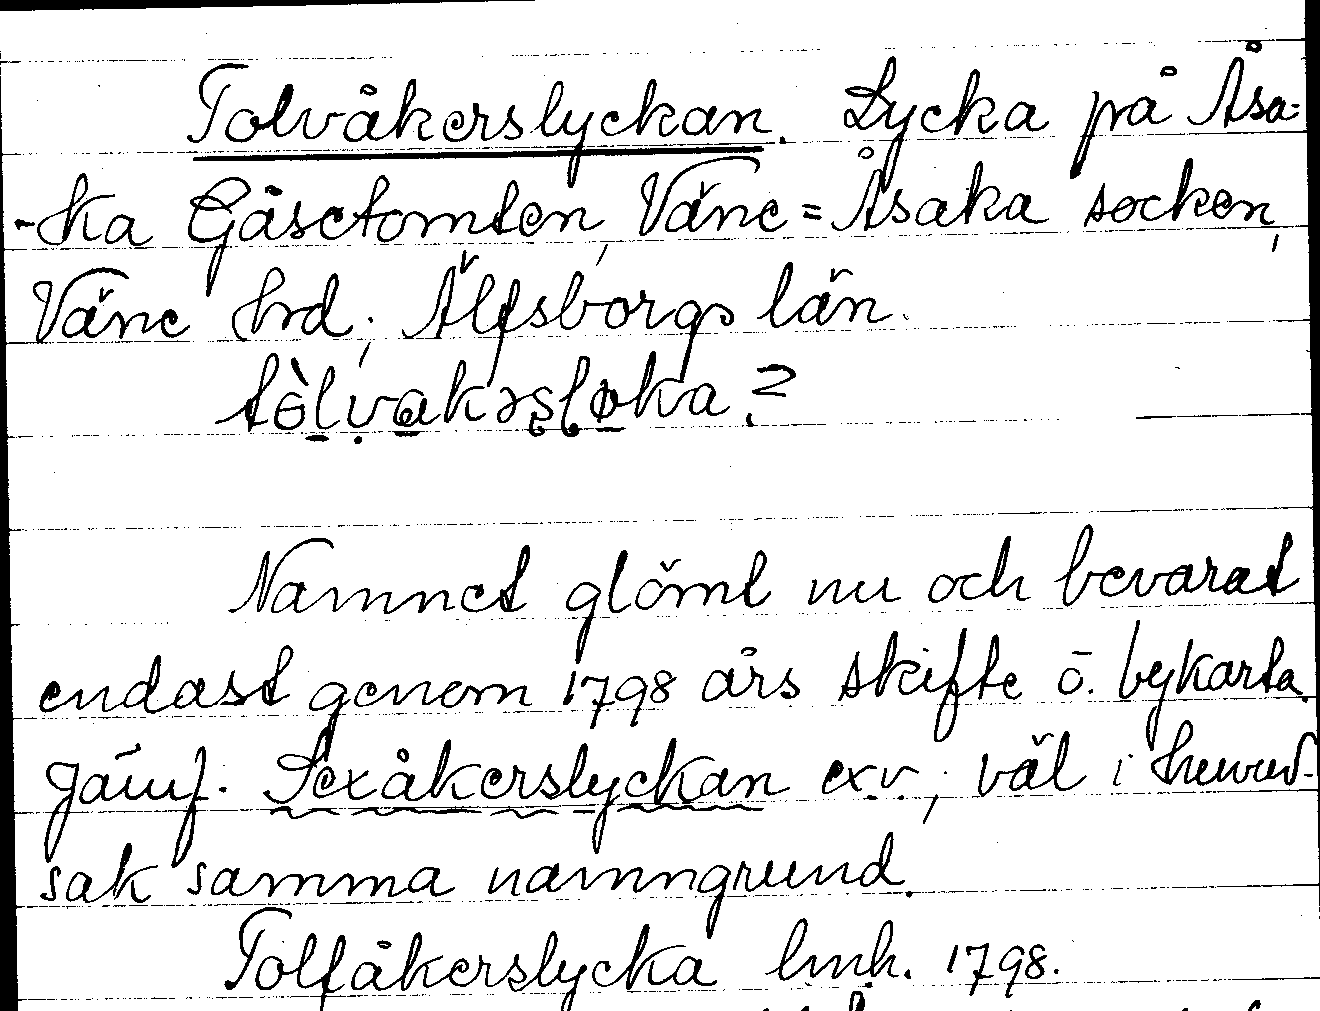 Tolvåkerslyckan. Lycka på Åsa=
-ka Gåsetomten, Väne=Åsaka socken,
Väne hrd, Älfsborgs län.
tòlvakəsløka?
Namnet glömt nu och bevarat
endast genom 1798 års skifte o. bykarta.
Jämf. Sexåkerslyckan exv., väl i huvud-
sak samma namngrund.
Tolfåkerslycka lmh. 1798.